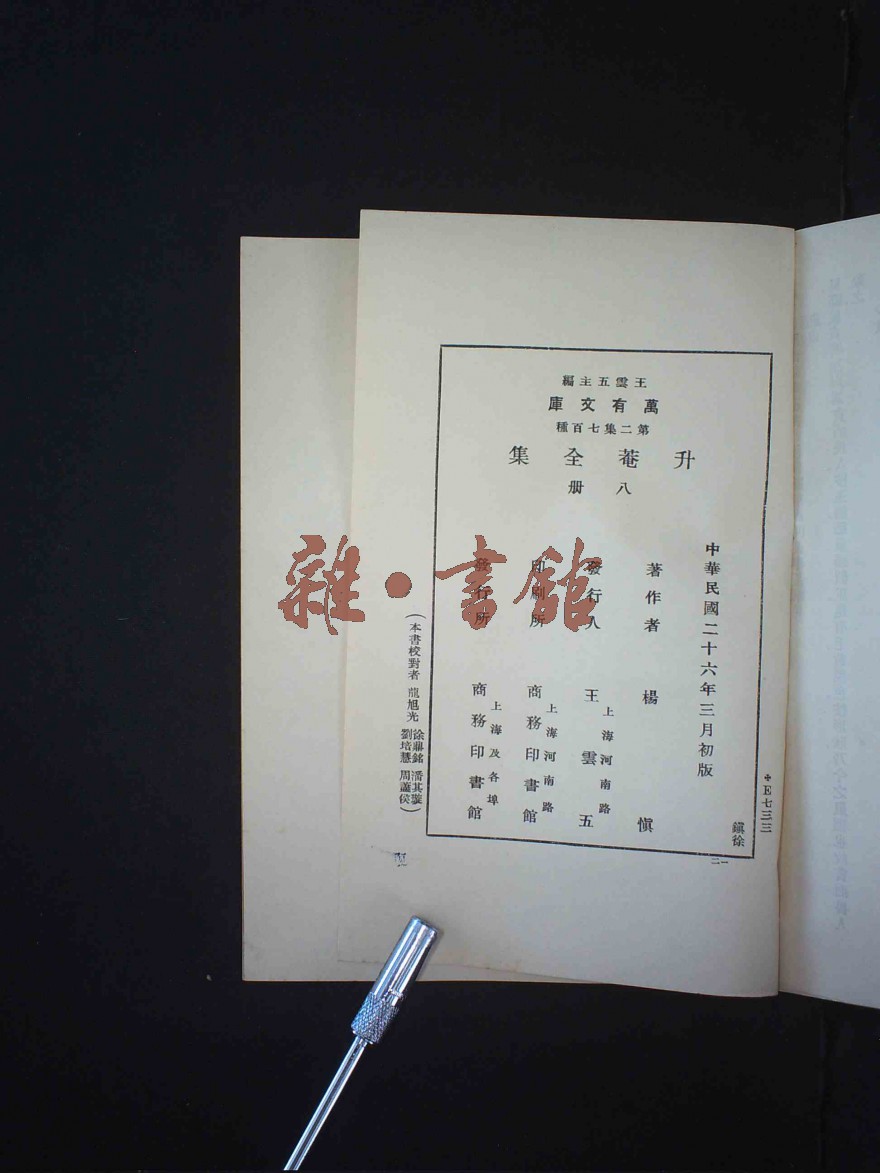 王雲五主編
萬有文庫
第二集七百種
升菴全集
八册
中華民國二十六年三月初版
著作者 楊慎
發行人 王雲五
上海河南路
印刷所 商務印書館
上海河南路
發行所 商務印書館
上海及各埠
(本書校對者 龍旭光
徐鼎銘 潘其璇
劉培慧 周蘆侯)
E七三三
鎮徐
一二
雜·書館